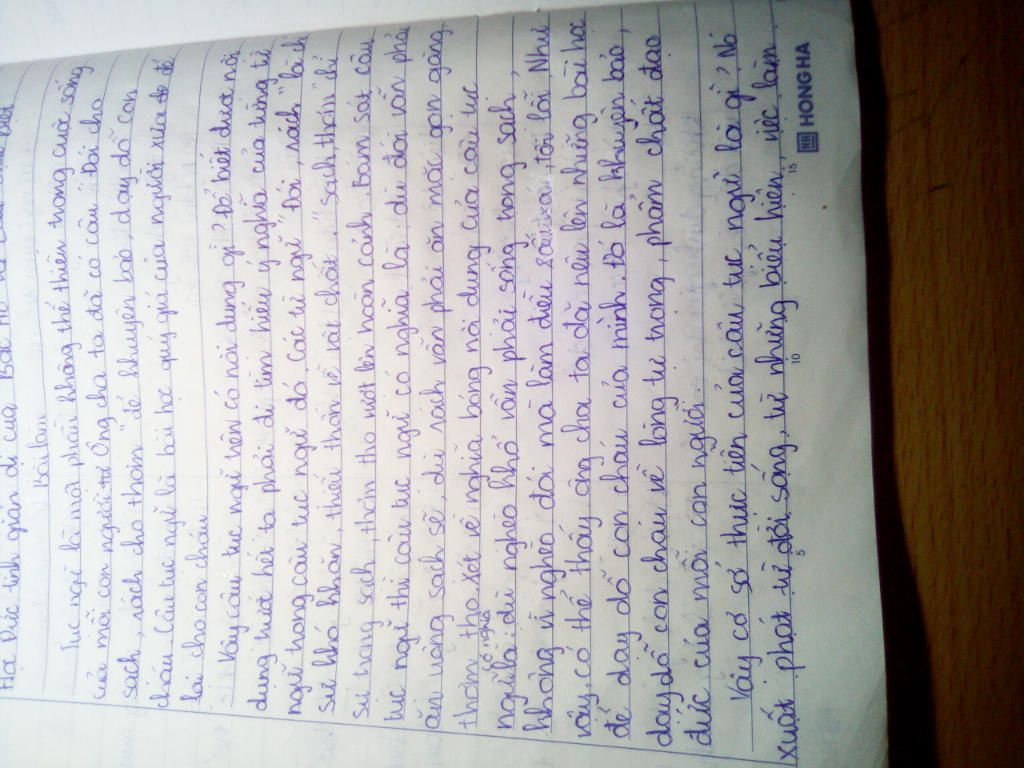 Hạ Đức tính giản dị của Bác Hồ
Bài làm
Tục ngữ là một phần không thể thiếu trong cuộc sống
của mỗi con người ta. Ông cha ta đã có câu "Đói cho
sạch, rách cho thơm" để khuyên bảo, dạy dỗ con
cháu. Câu tục ngữ là bài học quý giá của người xưa để
lại cho con cháu.
Vậy câu tục ngữ trên có nội dung gì? Để biết được nội
dung trước hết ta phải đi tìm hiểu ý nghĩa của từng từ
ngữ trong câu tục ngữ đó. Các từ ngữ "Đói, rách" là chỉ
sự khó khăn, thiếu thốn về vật chất. "Sạch, thơm" chỉ
sự trong sạch, thơm tho một lên hoàn cảnh. Bám sát câu
tục ngữ thì câu tục ngữ có nghĩa là: dù đói vẫn phải
ăn uống sạch sẽ, dù rách vẫn phải ăn mặc gọn gàng,
thơm tho. Xét về nghĩa bóng nội dung của câu tục
ngữ có nghĩa là: dù nghèo khó vẫn phải sống trong sạch,
không vì nghèo đói mà làm điều xấu xa, tội lỗi. Như
vậy, có thể thấy ông cha ta đã nêu lên những bài học
để dạy dỗ con cháu của mình. Đó là khuyên bảo,
dạy dỗ con cháu về lòng tự trọng, phẩm chất đạo
đức của mỗi con người.
Vậy cơ sở thực tiễn của câu tục ngữ là gì? Nó
xuất phát từ đời sống, từ những biểu hiện, việc làm
5 10 15
HONG HA